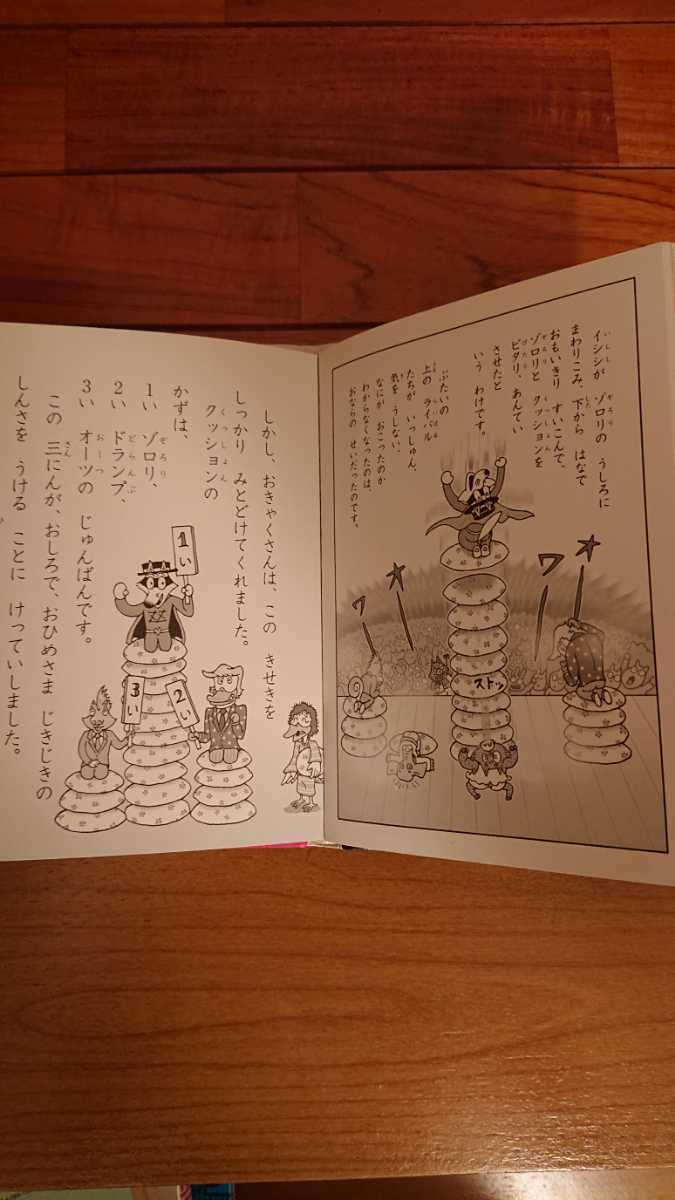 イシシが ゾロリの うしろに
まわりこみ、下から はなで
おもいきり すいこんで、
ゾロリと クッションを
ピタリ、あんてい
させたと
いう わけです。
ぶたいの
上の ライバル
たちが いっしゅん、
気を うしない、
なにが おこったのか
わからなくなったのは、
おならの せいだったのです。
オ
ワ
オ
ワ
ストッ
しかし、おきゃくさんは、この きせきを
しっかり みとどけてくれました。
クッションの
かずは、
1い ゾロリ、
2い ドランプ、
3い オーツの じゅんばんです。
この 三にんが、おしろで、おひめさま じきじきの
しんさを うける ことに けっていしました。
1い
2い
3い